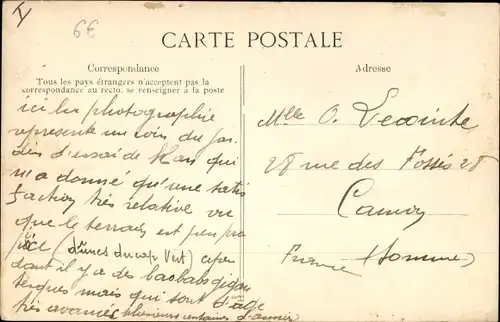 6€
CARTE POSTALE
Correspondance
Tous les pays étrangers n'acceptent pas la
correspondance au recto, se renseigner à la poste
ici la photographie
represente un coin du jar
din d'essai de Han qui
m'a donné qu'une satis
faction très relative vu
que le terrain est peu pro
pice (dunes du cap Vert) cepen
dant il y a des baobabs gigan
tesques mais qui sont d'age
très avancé plusieurs centaines d'années
Adresse
Mlle O. Lecointe
28 rue des Fossés 28
Camon
France (Somme)